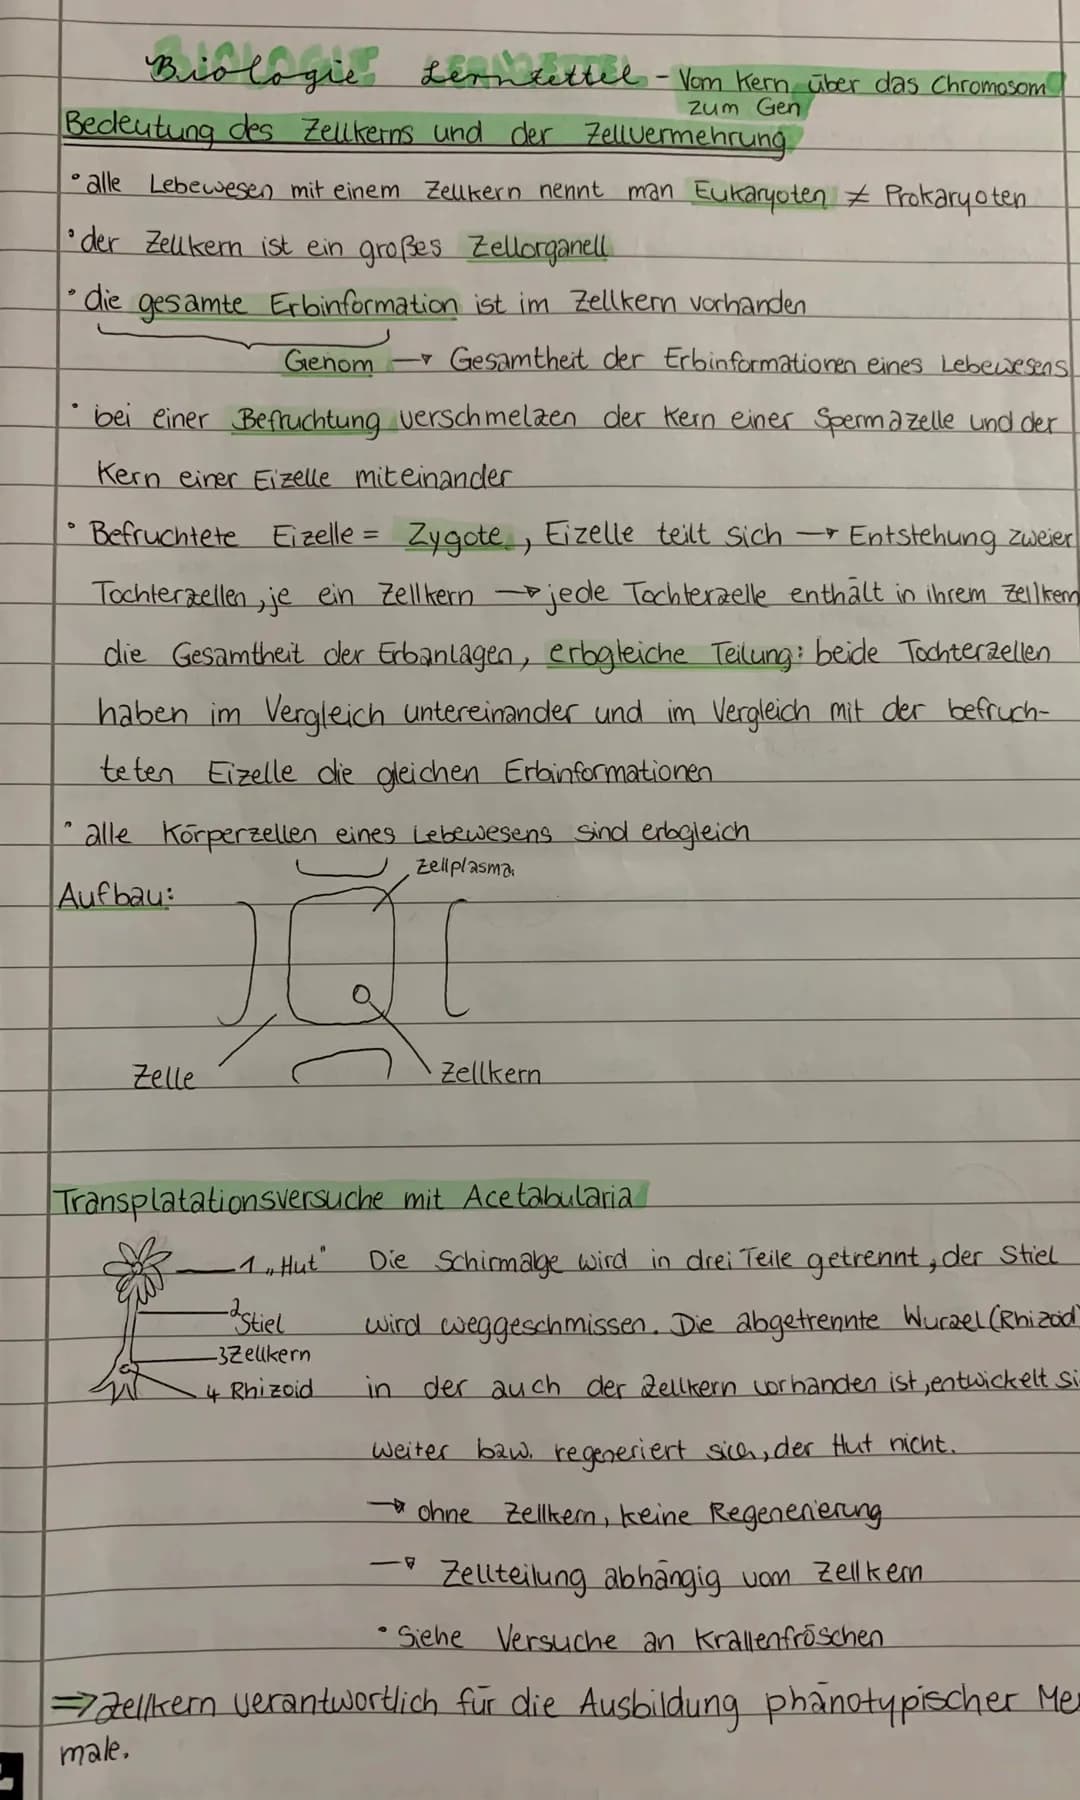 Biologie Lernzettel - Vom Kern über das Chromosom
zum Gen
Bedeutung des Zellkerns und der Zellvermehrung
• alle Lebewesen mit einem Zellkern nennt man Eukaryoten ≠ Prokaryoten
• der Zellkern ist ein großes Zellorganell
• die gesamte Erbinformation ist im Zellkern vorhanden
Genom → Gesamtheit der Erbinformationen eines Lebewesens
• bei einer Befruchtung verschmelzen der Kern einer Spermazelle und der
Kern einer Eizelle miteinander
• Befruchtete Eizelle = Zygote, Eizelle teilt sich → Entstehung zweier
Tochterzellen, je ein Zellkern → jede Tochterzelle enthält in ihrem Zellkern
die Gesamtheit der Erbanlagen, erbgleiche Teilung: beide Tochterzellen
haben im Vergleich untereinander und im Vergleich mit der befruch-
teten Eizelle die gleichen Erbinformationen
• alle Körperzellen eines Lebewesens sind erbgleich
Zellplasma
Aufbau:
Zelle
Zellkern
Transplatationsversuche mit Acetabularia
1 „Hut" Die Schirmalge wird in drei Teile getrennt, der Stiel
2 Stiel wird weggeschmissen. Die abgetrennte Wurzel (Rhizoid)
3 Zellkern
4 Rhizoid in der auch der Zellkern vorhanden ist, entwickelt si
weiter bzw. regeneriert sich, der Hut nicht.
→ ohne Zellkern, keine Regenerierung
→ Zellteilung abhängig vom Zellkern
• Siehe Versuche an Krallenfröschen
⇒ Zellkern verantwortlich für die Ausbildung phänotypischer Mer
male.